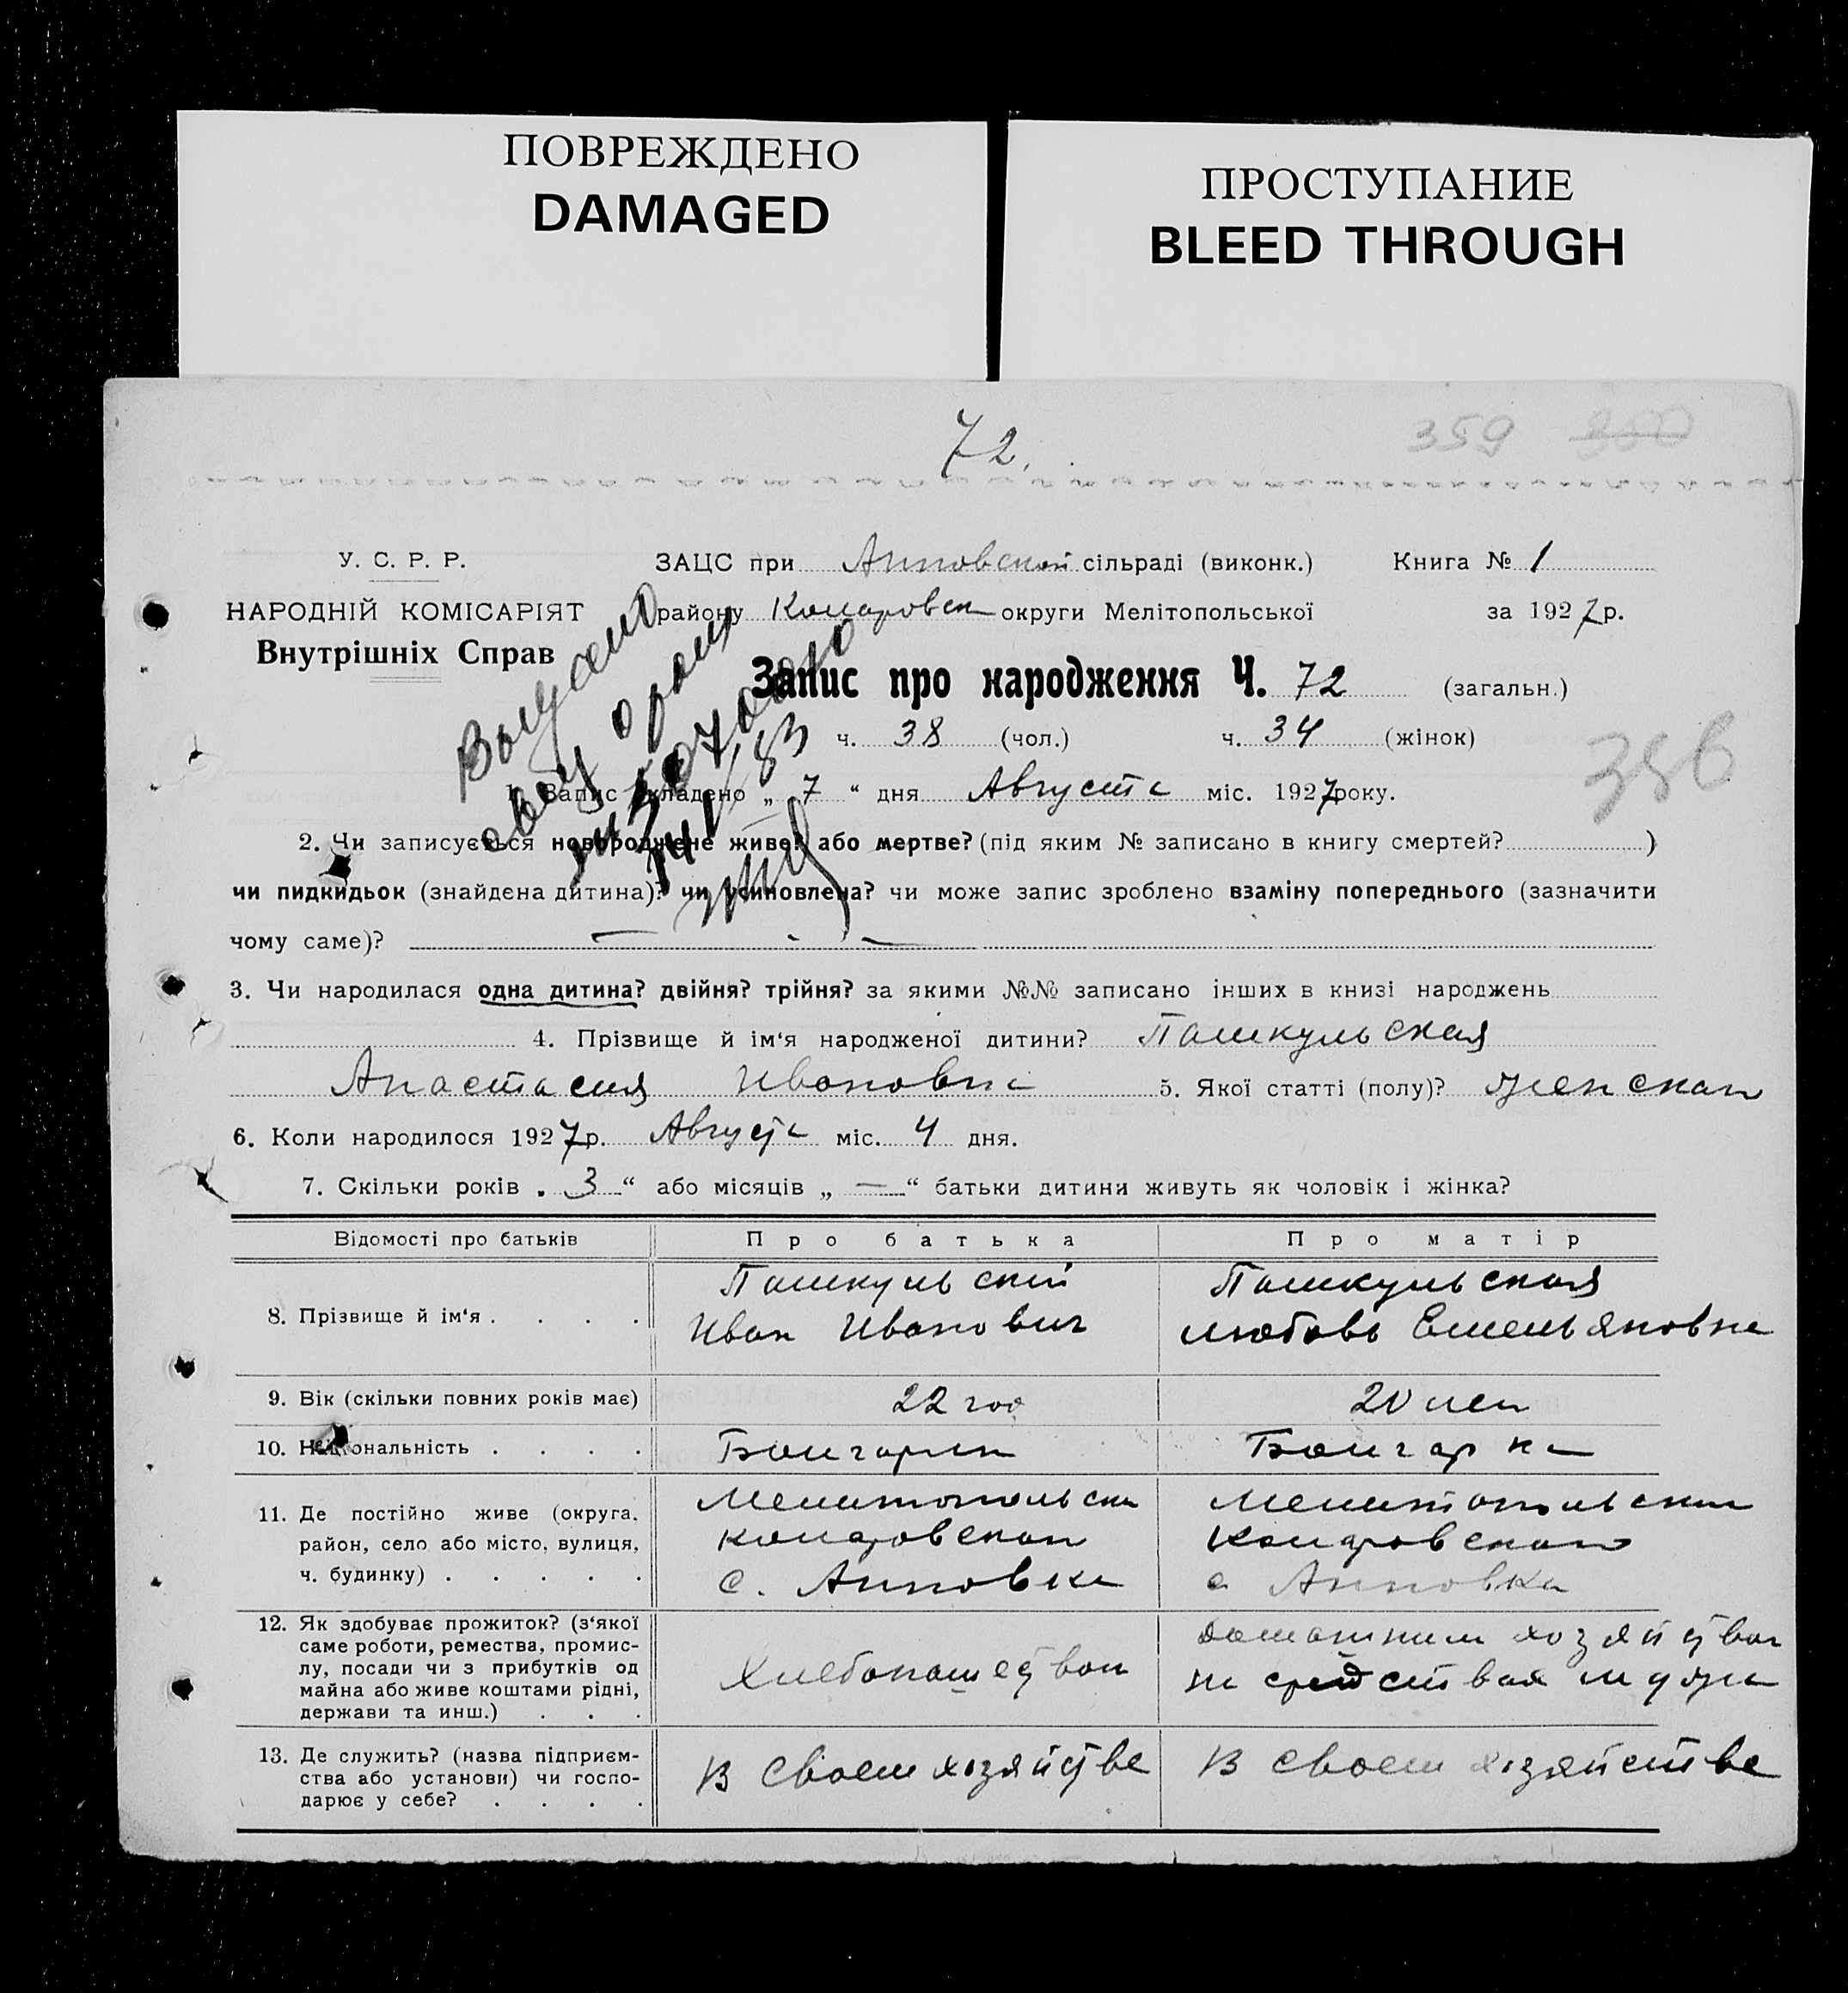 ПОВРЕЖДЕНО
DAMAGED
ПРОСТУПАНИЕ
BLEED THROUGH
72.
359
У. С. Р. Р.
НАРОДНІЙ КОМІСАРІЯТ
Внутрішніх Справ
ЗАЦС при Анновской сільраді (виконк.) Книга № 1
району округи Мелітопольської за 1927 р.
Запис про народження Ч. 72 (загальн.)
ч. 38 (чол.) ч. 34 (жінок)
386
1. Запис складено „ 7 “ дня Августа міс. 1927 року.
2. Чи записується новороджене живе? або мертве? (під яким № записано в книгу смертей? )
чи пидкидьок (знайдена дитина)? чи усиновлена? чи може запис зроблено взаміну попереднього (зазначити
чому саме)? —
3. Чи народилася одна дитина? двійня? трійня? за якими №№ записано інших в книзі народжень
4. Прізвище й ім'я народженої дитини? Пашкульская
Анастасия Ивановна 5. Якої статті (полу)? женскаго
6. Коли народилося 1927 р. Августа міс. 4 дня.
7. Скільки років „ 3 “ або місяців „ — “ батьки дитини живуть як чоловік і жінка?
Відомості про батьків Про батька Про матір
8. Прізвище й ім'я . . . .
Пашкульский
Иван Иванович
Пашкульская
Любовь Емельяновна
9. Вік (скільки повних років має) 22 год 20 лет
10. Національність . . . . Болгарин Болгарка
11. Де постійно живе (округа,
район, село або місто, вулиця,
ч. будинку) . . . . .
Мелитопольск
с. Анновка
Мелитопольск
с Анновка
12. Як здобуває прожиток? (з'якої
саме роботи, ремества, промис-
лу, посади чи з прибутків од
майна або живе коштами рідні,
держави та инш.) . . .
Хлебопашеством
домашним хозяйством
на средствах мужа
13. Де служить? (назва підприєм-
ства або установи) чи госпо-
дарює у себе? . . . .
В своем хозяйстве
В своем хозяйстве